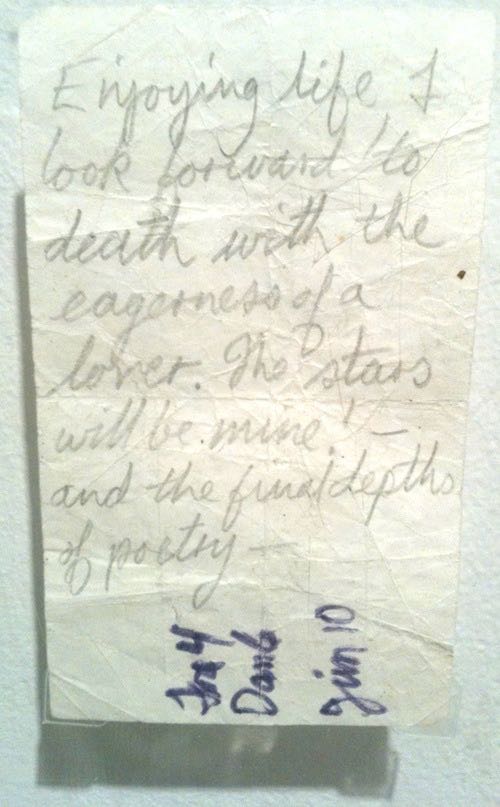 Enjoying life I
look forward to
death with the
eagerness of a
lover. The stars
will be mine! —
and the final depths
of poetry —
4
10